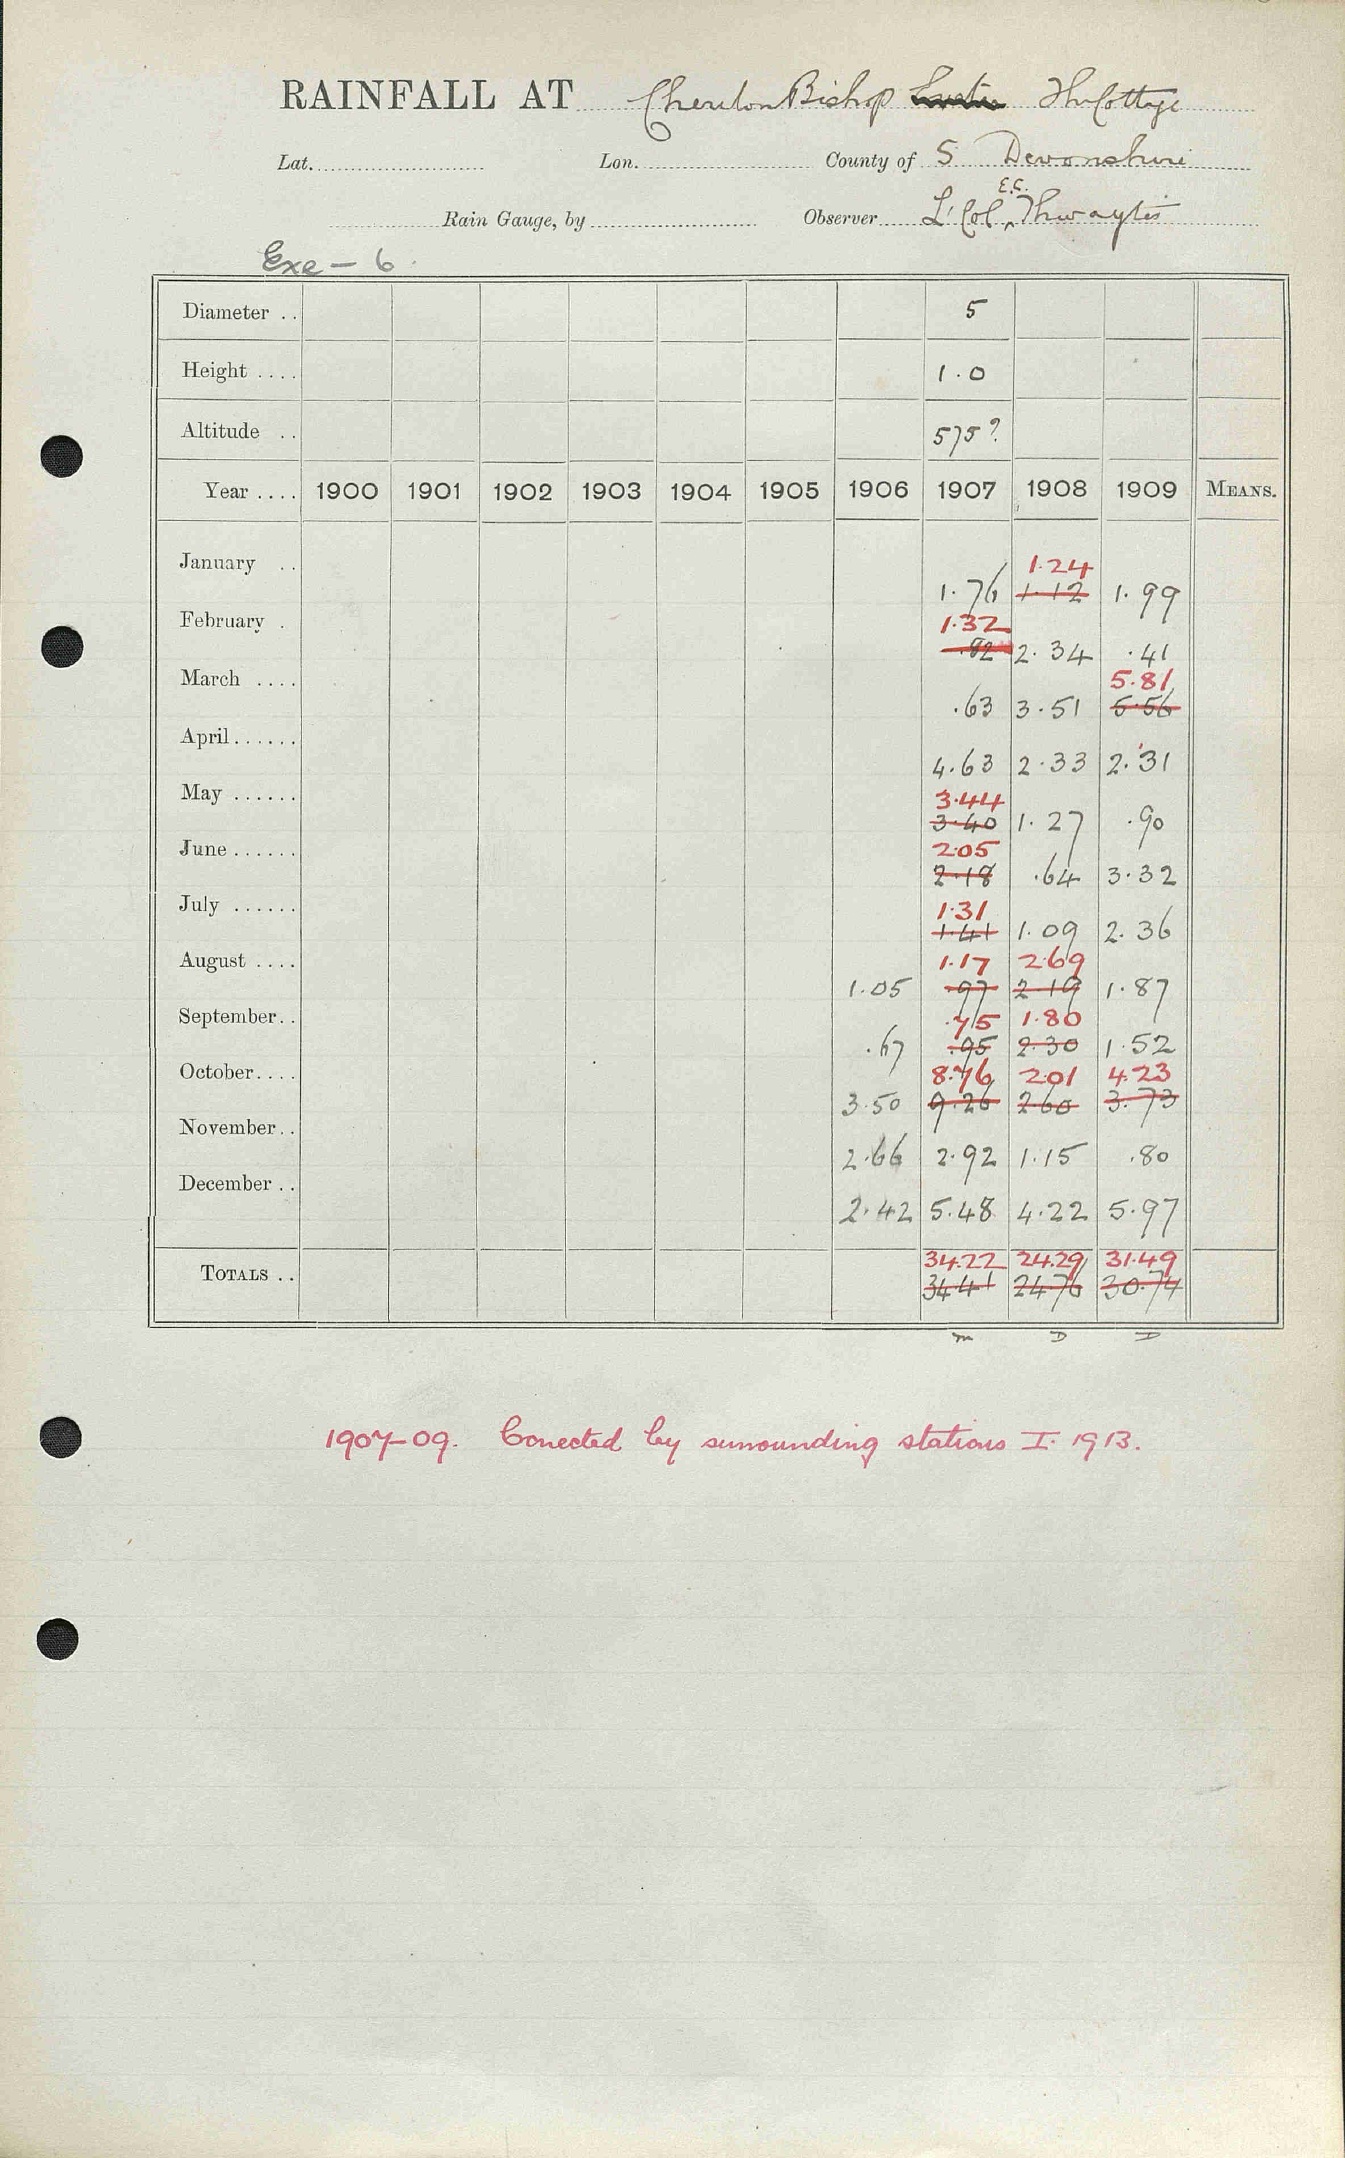 RAINFALL AT Cheriton Bishop The Cottage
Lat. Lon. County of S. Devonshire
E.C.
Rain Gauge, by Observer Lt Col ^ Thwaytes
Exe - 6.
Diameter .. 5
Height .... 1.0
Altitude .. 575?
Year .... 1900 1901 1902 1903 1904 1905 1906 1907 1908 1909 MEANS.
January .. 1.24
1.76 1.12 1.99
February . 1.32
.82 2.34 .41
March .... 5.81
.63 3.51 5.56
April......
4.63 2.33 2.31
May ...... 3.44
3.40 1.27 .90
June...... 2.05
2.18 .64 3.32
July ...... 1.31
1.41 1.09 2.36
August .... 1.17 2.69
1.05 .97 2.19 1.87
September.. .75 1.80
.67 .95 2.30 1.52
October.... 8.76 2.01 4.23
3.50 9.26 2.60 3.73
November..
2.66 2.92 1.15 .80
December ..
2.42 5.48 4.22 5.97
34.22 24.29 31.49
TOTALS .. 34.41 24.76 30.74
m D D
1907-09. Corrected by surrounding stations I. 1913.